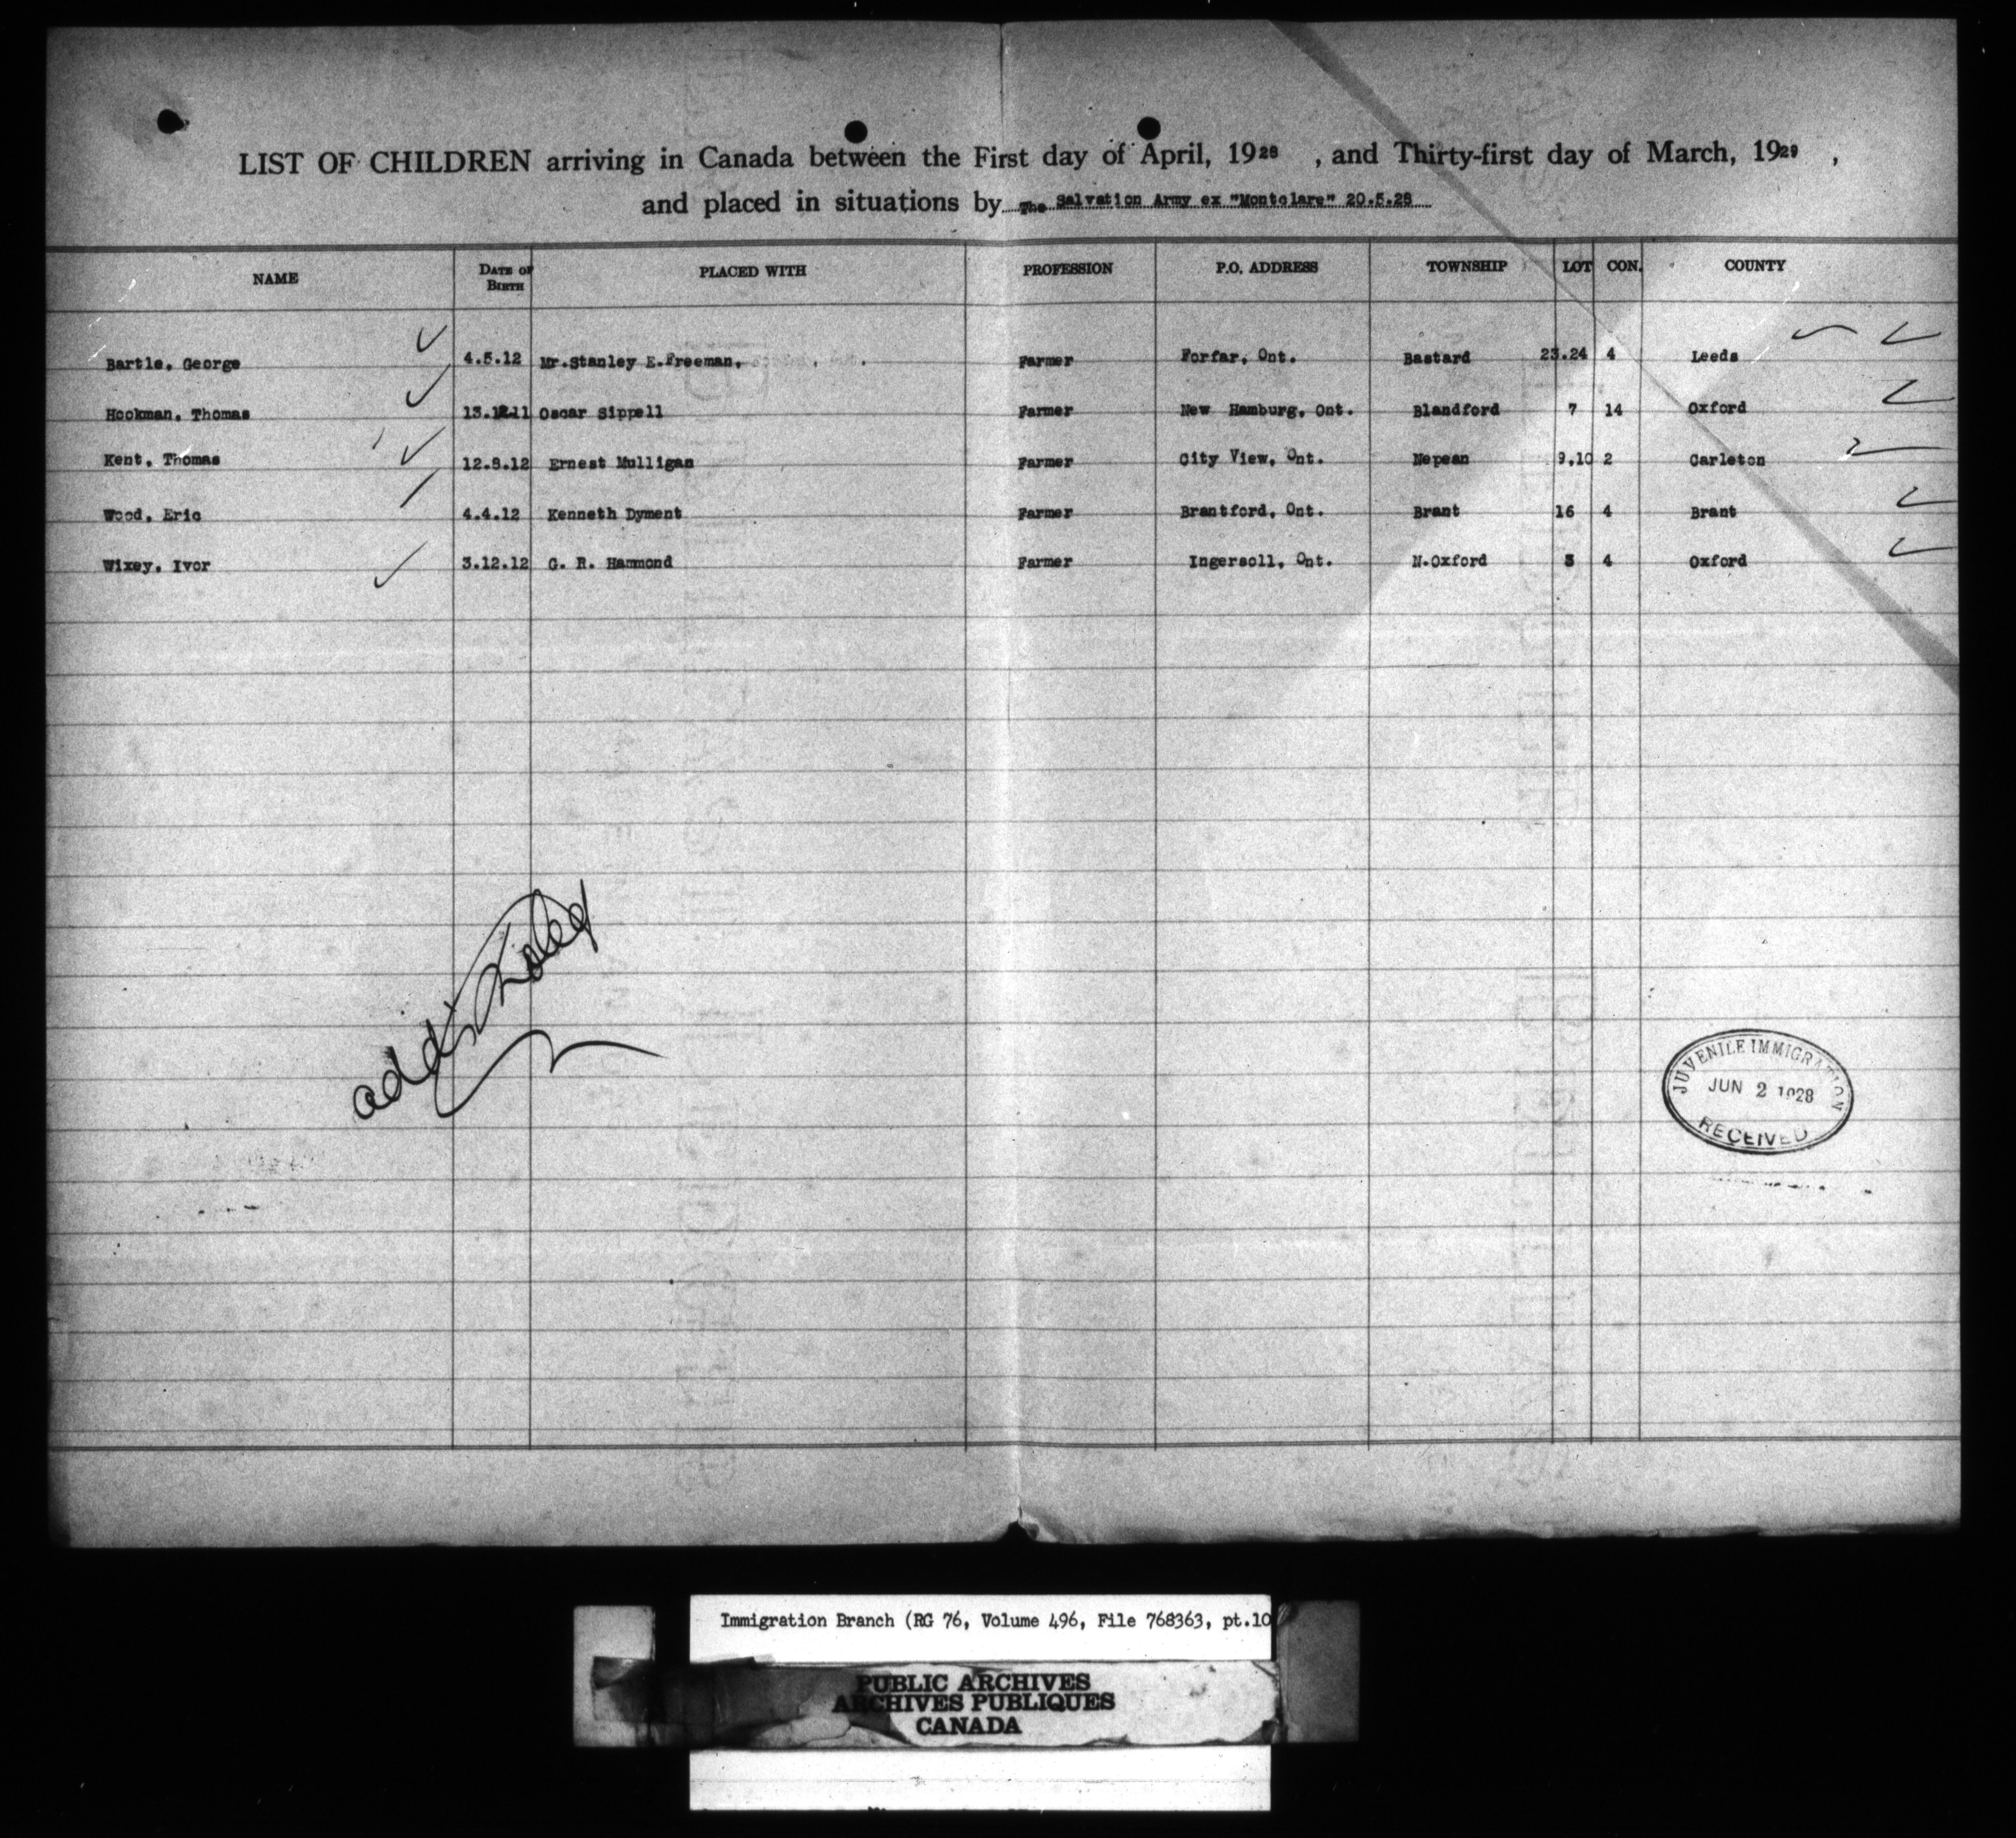 LIST OF CHILDREN arriving in Canada between the First day of April, 1928 , and Thirty-first day of March, 1929 ,
and placed in situations by The Salvation Army ex "Montclare" 20.5.28
NAME DATE OF BIRTH PLACED WITH PROFESSION P.O. ADDRESS TOWNSHIP LOT CON. COUNTY
Bartle, George 4.5.12 Mr.Stanley E.Freeman, Farmer Forfar, Ont. Bastard 23.24 4 Leeds
Hookman, Thomas 13.12.11 Oscar Sippell Farmer New Hamburg, Ont. Blandford 7 14 Oxford
Kent, Thomas 12.8.12 Ernest Mulligan Farmer City View, Ont. Nepean 9,10 2 Carleton
Wood, Eric 4.4.12 Kenneth Dyment Farmer Brantford, Ont. Brant 16 4 Brant
Wixey, Ivor 3.12.12 G. R. Hammond Farmer Ingersoll, Ont. N.Oxford 4 Oxford
JUVENILE IMMIGRATION
JUN 2 1928
RECEIVED
Immigration Branch (RG 76, Volume 496, File 768363, pt.10
PUBLIC ARCHIVES
ARCHIVES PUBLIQUES
CANADA